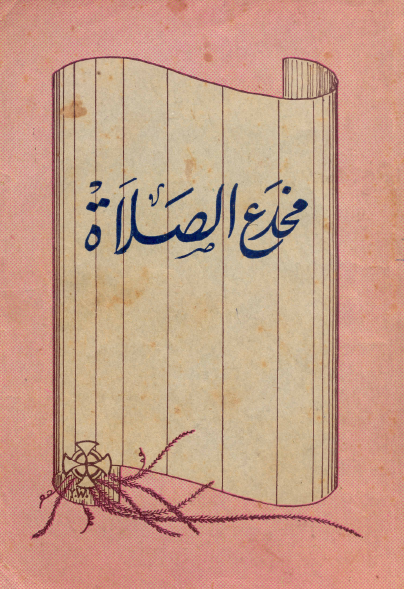 مخدَع الصَلاَة
Y.W.